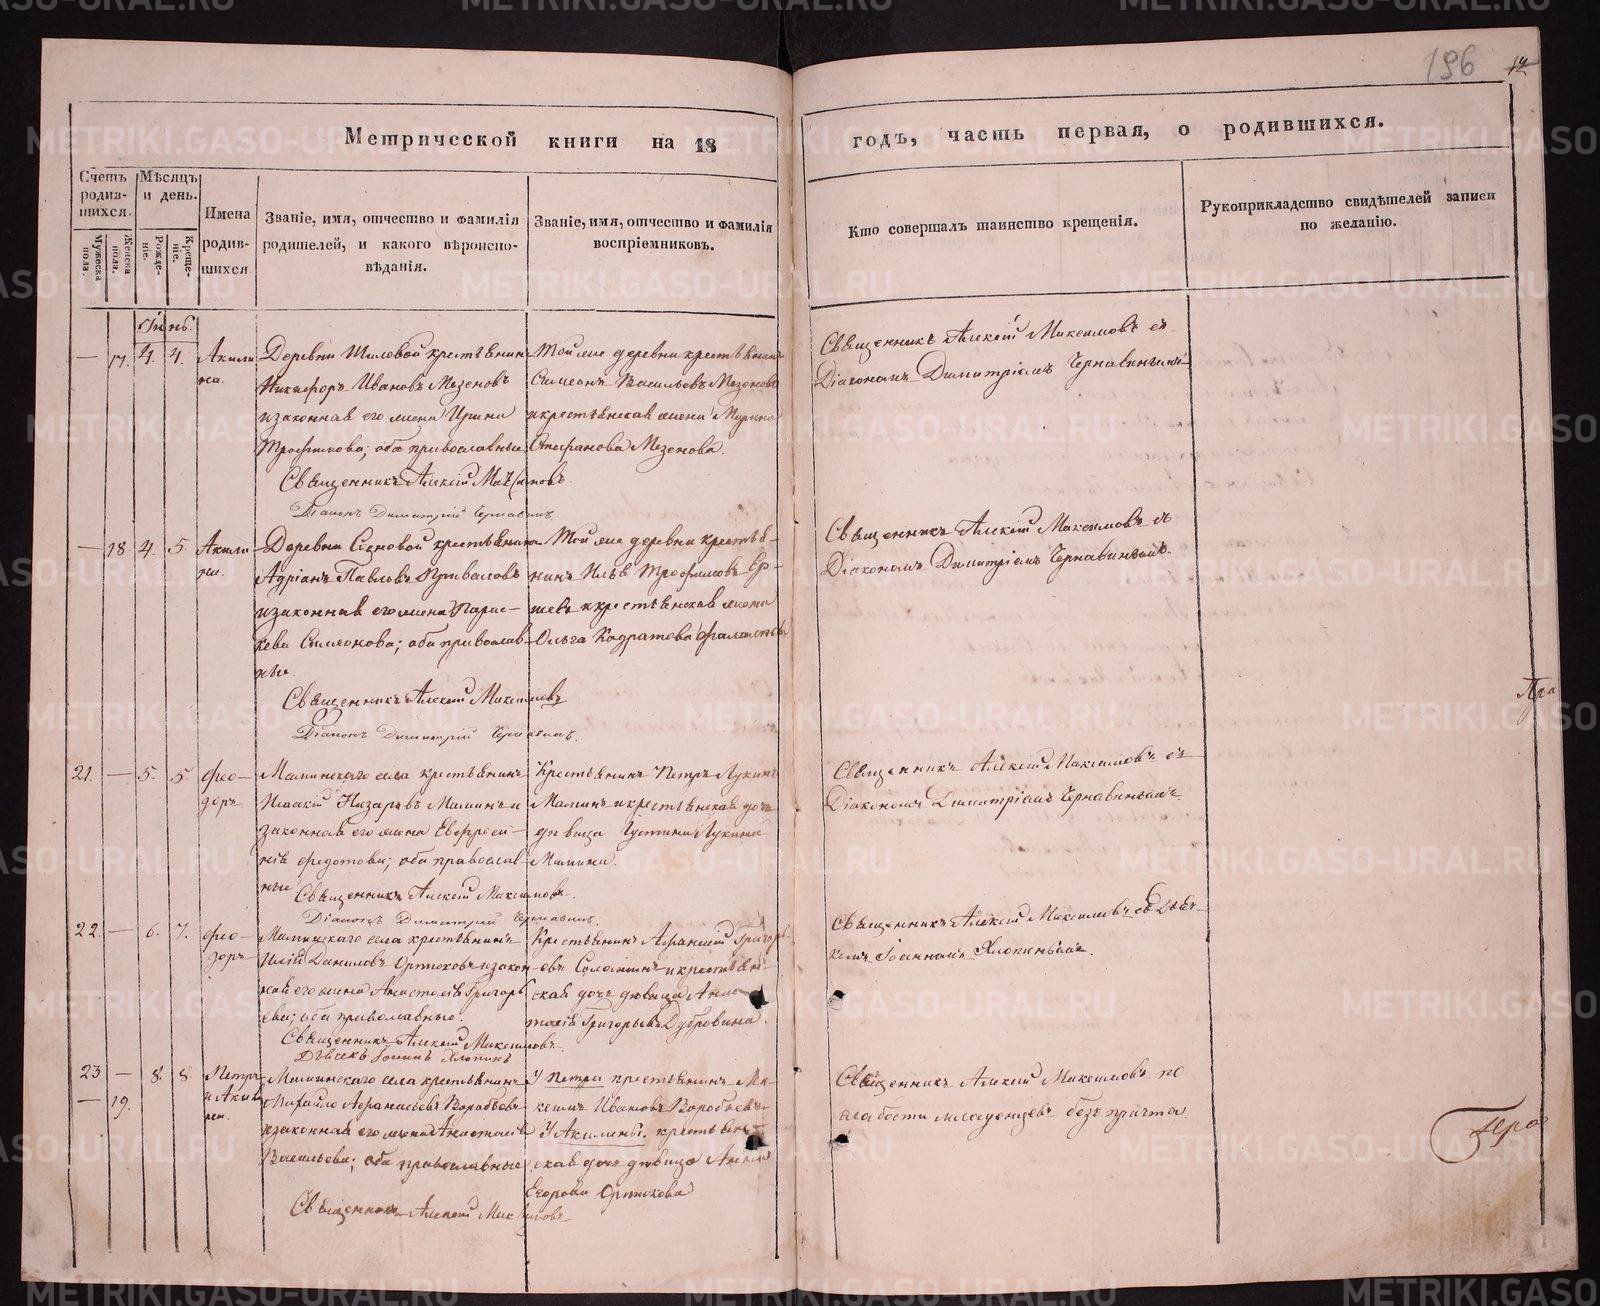 196
Метрической книги на 18
годъ, часть первая, о родившихся.
Счетъ родив-шихся.
Мѣсяцъ и день.
Мужеска пола.
Женска пола.
Рожде-ніе.
Креще-ніе.
Имена родив-шихся
Званіе, имя, отчество и фамилія
родителей, и какого вѣроиспо-
вѣданія.
Званіе, имя, отчество и фамилія
воспріемниковъ.
Кто совершалъ таинство крещенія.
Рукоприкладство свидѣтелей записи
по желанію.
Іюнь.
— 17. 4. 4. Акили
на.
Деревни Шиловой крестьянинъ
Никифоръ Ивановъ Мезеновъ
и законная его жена Ирина
Трофимова; оба православные
Священникъ Алексій Максимовъ
Діаконъ Димитрій Чернавинъ.
Той же деревни крестьянинъ
Симеонъ Васильевъ Мезеновъ
и крестьянская жена Марина
Стефанова Мезенова.
Священникъ Алексій Максимовъ съ
Діакономъ Димитріемъ Чернавинымъ
— 18 4. 5 Акили
на.
Деревни крестьянинъ
Адріанъ Павловъ Приваловъ
и законная его жена Парас-
кева Симеонова; оба православ-
ные.
Священникъ Алексій Максимовъ
Діаконъ Димитрій Чернавинъ.
Той же деревни крестья-
нинъ Илья Трофимовъ Ер-
шевъ и крестьянская жена
Ольга Кодратова
Священникъ Алексій Максимовъ съ
Діакономъ Димитріемъ Чернавинымъ.
21. — 5. 5 Фео-
доръ
Маминскаго села крестьянинъ
Исаакій Назаровъ Маминъ и
законная его жена Евфроси-
нія Федотова; оба православ-
ные
Священникъ Алексій Максимовъ.
Діаконъ Димитрій Чернавинъ.
Крестьянинъ Петръ Лукинъ
Маминъ и крестьянская дочь
дѣвица Іустина Лукина
Мамина.
Священникъ Алексій Максимовъ съ
Діакономъ Димитріемъ Чернавинымъ.
22. — 6. 7. Фео-
доръ
Маминскаго села крестьянинъ
Илія Даниловъ Ортюховъ и закон-
ная его жена Анастасія Григорь
ева; оба православные.
Священникъ Алексій Максимовъ.
Дьячекъ Іоаннъ Хлопинъ
Крестьянинъ Афанасій Григорь
евъ и крестьян-
ская дочь дѣвица Анас
тасія Григорьева Дубровина.
Священникъ Алексій Максимовъ съ Дьяч-
комъ Іоанномъ Хлопинымъ.
23 — 8. 8. Петръ
— 19. и Акили
на.
Маминскаго села крестьянинъ
Михайло Афанасьевъ Воробьевъ
и законная его жена Анастасія
Васильева; оба православные
Священникъ Алексій Максимовъ
У Петра крестьянинъ Ма-
ксимъ Ивановъ Воробьевъ.
У Акилины. крестьян-
ская дочь дѣвица
Егорова Ортюхова
Священникъ Алексій Максимовъ по
слабости младенцевъ безъ причта.